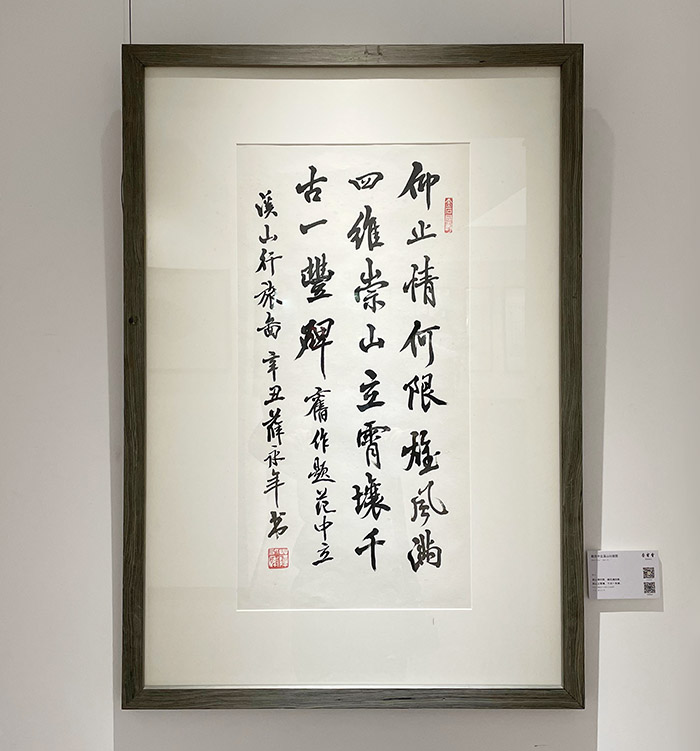 仰止情何限雄风满
四维崇山立霄壤千
古一豐碑舊作题范中立
溪山行旅圖辛丑薛永年书